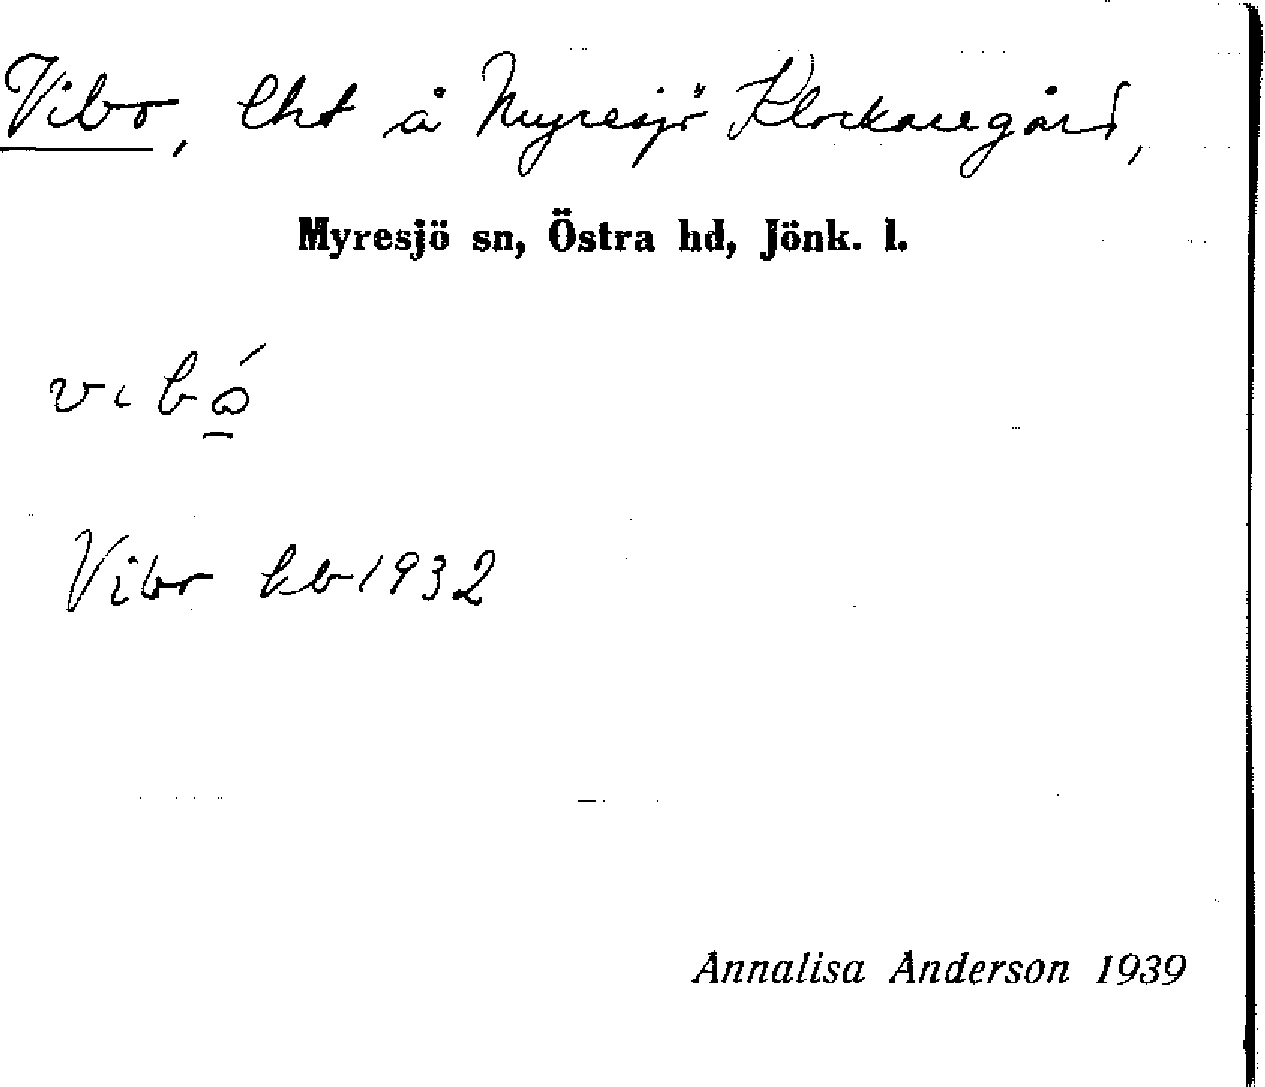 Vibo, lht å Myresjö Klockaregård,
Myresjö sn, Östra hd, Jönk. l.
Vibo kb 1932
Annalisa Anderson 1939